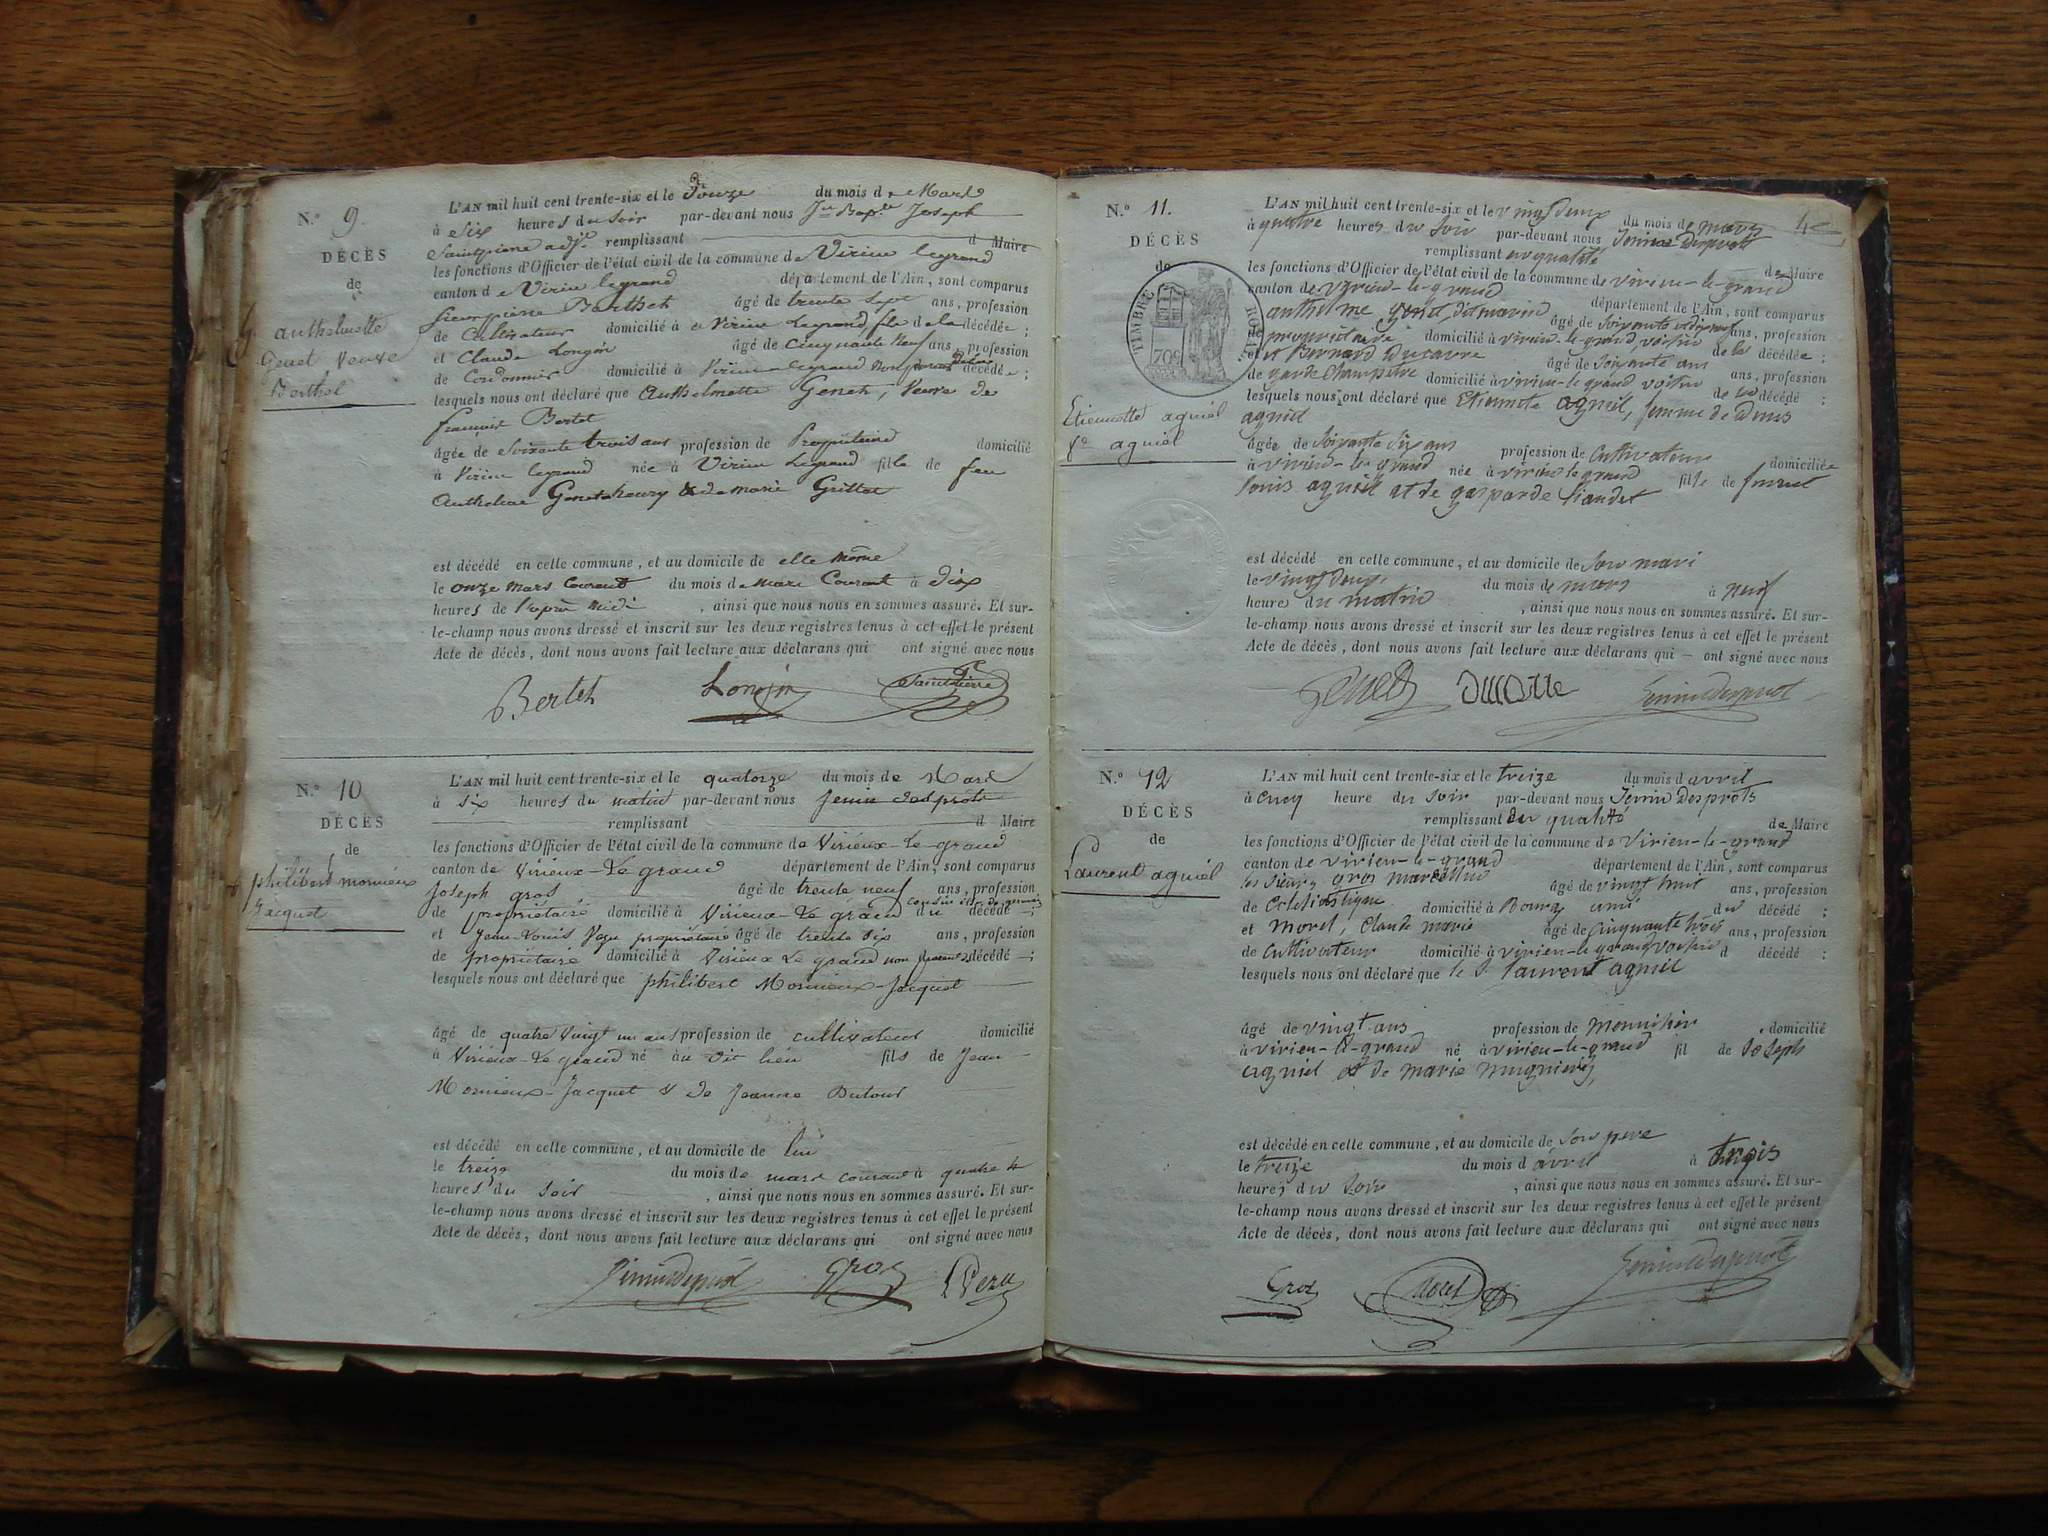 N.º 9.
DÉCÈS
de
anthelmette
Genet veuve
Berthet
L'AN mil huit cent trente-six et le Douze du mois de Mars
à Six heures du Soir par-devant nous Jn Bapte Joseph
Saintpierre adjt remplissant d Maire
les fonctions d'Officier de l'état civil de la commune de Virieu legrand
canton de Virieu legrand département de l'Ain, sont comparus
Sieur pierre Berthet âgé de trente Sept ans, profession
de Cultivateur domicilié à Virieu Legrand, fils de la décédée;
et Claude Longin âgé de Cinquante neuf ans, profession
de Cordonnier domicilié à Virieu-legrand non parent décédée;
lesquels nous ont déclaré que Anthelmette Genet, Veuve de
françois Bertet
âgée de Soixante trois ans profession de Propriétaire domicilié
à Virieu legrand née à Virieu Legrand fille de feu
Genet & de marie Grillet
est décédé en cette commune, et au domicile de elle même
le onze mars Courant du mois de mars Courant à Dix
heures de l'après Midi, ainsi que nous nous en sommes assuré. Et sur-
le-champ nous avons dressé et inscrit sur les deux registres tenus à cet effet le présent
Acte de décès, dont nous avons fait lecture aux déclarans qui ont signé avec nous
Bertet Longin Saintpierre
N.º 10
DÉCÈS
de
philibert monnieux
Jacquet
L'AN mil huit cent trente-six et le quatorze du mois de Mars
à six heures du matin par-devant nous Jenin desprôts
remplissant d Maire
les fonctions d'Officier de l'état civil de la commune de Virieux-Le-grand
canton de Virieux-Le grand département de l'Ain, sont comparus
Joseph gros âgé de trente neuf ans, profession
de propriétaire domicilié à Virieux-Le grand cousin du décédé;
et Jean-Louis propriétaire âgé de trente six ans, profession
de propriétaire domicilié à Virieux Le grand non parent décédé;
lesquels nous ont déclaré que philibert Monnieux-Jacquet
âgé de quatre vingt un ans profession de cultivateur domicilié
à Virieux-Le grand né au dit lieu fils de Jean
Monnieux-Jacquet & de Jeanne Dutour
est décédé en cette commune, et au domicile de lui
le treize du mois de mars courant à quatre
heures du soir, ainsi que nous nous en sommes assuré. Et sur-
le-champ nous avons dressé et inscrit sur les deux registres tenus à cet effet le présent
Acte de décès, dont nous avons fait lecture aux déclarans qui ont signé avec nous
Jenindesprost Gros
N.º 11.
DÉCÈS
de
TIMBRE ROYAL
Etiennette aguiel
fe aguiel
L'AN mil huit cent trente-six et le vingt deux du mois de mars
à quatre heures du Soir par-devant nous Jenin Desprost
remplissant de Maire
les fonctions d'Officier de l'état civil de la commune de virieu-le-grand
canton de virieu-le-grand département de l'Ain, sont comparus
anthelme genet dit marin âgé de Soixante ans, profession
de propriétaire domicilié à virieu-le grand voisin de la décédée;
et Bernard Ducarre âgé de Soixante ans ans, profession
de garde Champetre domicilié à virieu-le grand voisin de la décédé;
lesquels nous ont déclaré que Etiennete aguiel, femme de Denis
aguiel
âgée de Soixante Six ans profession de Cultivateur domiciliée
à virieu-le-grand née à virieu le grand fille de
Louis aguiel et de gasparde liaudet
est décédé en cette commune, et au domicile de Son mari
le vingt deux du mois de mars à neuf
heure du matin, ainsi que nous nous en sommes assuré. Et sur-
le-champ nous avons dressé et inscrit sur les deux registres tenus à cet effet le présent
Acte de décès, dont nous avons fait lecture aux déclarans qui ont signé avec nous
Genet Jenindesprost
N.º 12
DÉCÈS
de
Laurent aguiel
L'AN mil huit cent trente-six et le treize du mois d avril
à cinq heure du soir par-devant nous Jenin Desprôts
remplissant en qualité de Maire
les fonctions d'Officier de l'état civil de la commune de virieu-le-grand
canton de virieu-le-grand département de l'Ain, sont comparus
les sieurs gros marcellin âgé de vingt huit ans, profession
de domicilié à Bourg ami du décédé;
et Morel, Claude marie âgé de Cinquante trois ans, profession
de Cultivateur domicilié à virieu-le-grand voisin d décédé;
lesquels nous ont déclaré que le S. laurent aguiel
âgé de vingt ans profession de Menuisier domicilié
à virieu-le-grand né à virieu-le-grand fil de Joseph
aguiel et de marie
est décédé en cette commune, et au domicile de Son pere
le treize du mois d avril à trois
heures du Soir, ainsi que nous nous en sommes assuré. Et sur-
le-champ nous avons dressé et inscrit sur les deux registres tenus à cet effet le présent
Acte de décès, dont nous avons fait lecture aux déclarans qui ont signé avec nous
Gros Morel Jenindesprost